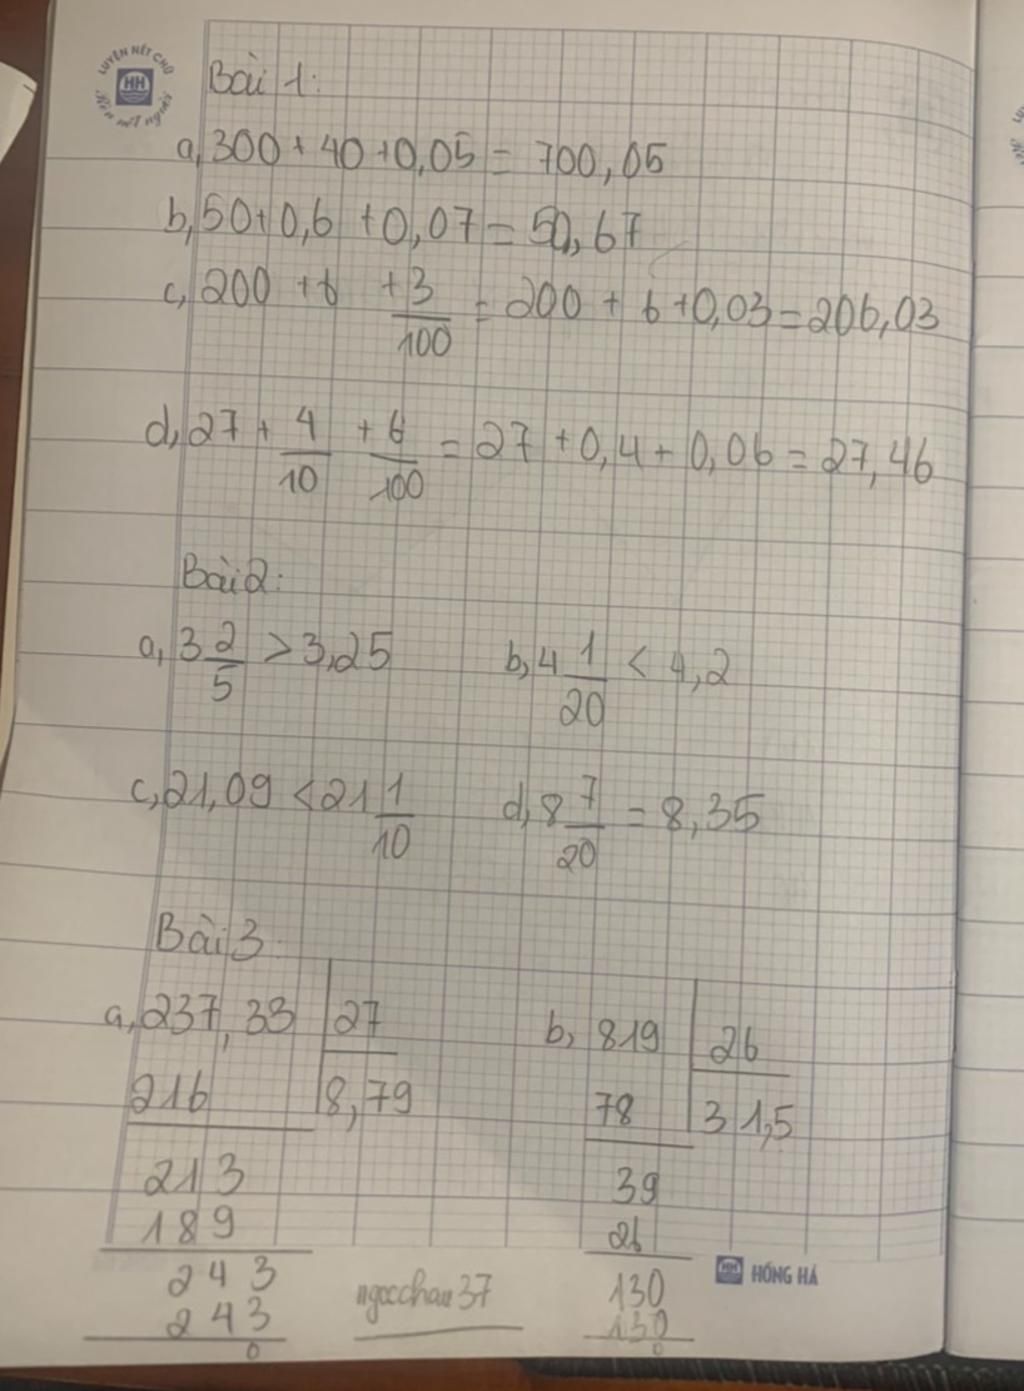 LUYỆN NÉT CHỮ
HH
Rèn nết người
Bài 1:
a, 300 + 40 + 0,05 = 700,05
b, 50 + 0,6 + 0,07 = 50,67
c, 200 + 6 + 3/100 = 200 + 6 + 0,03 = 206,03
d, 27 + 4/10 + 6/100 = 27 + 0,4 + 0,06 = 27,46
Bài 2:
a, 3 2/5 > 3,25 b, 4 1/20 < 4,2
c, 21,09 < 21 1/10 d, 8 7/20 = 8,35
Bài 3
a, 237,33 27 b, 819 26
216 8,79 78 31,5
213 39
189 26
243 130
243 130
0 0
ngocchau37
HH HỒNG HÀ